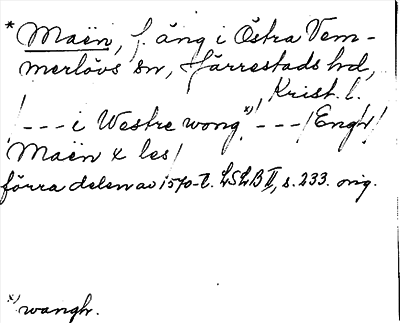 * Maën, f. äng i Östra Vem-
merlövs sn, Järrestads hd,
Krist. l.
/--- i Westre wong x) ---/ Engh /
Maën x les /
förra delen av 1570-t. LSLB II, s. 233. orig.
x) wangh.